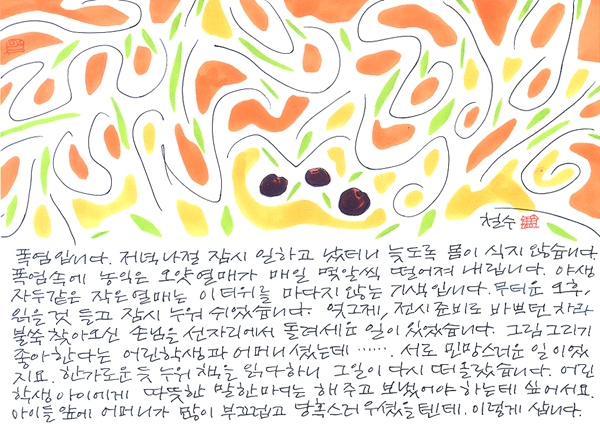 철수
폭염입니다. 저녁나절 잠시 일하고 났더니 늦도록 몸이 식지 않습니다.
폭염속에 농익은 오얏열매가 매일 몇알씩 떨어져 내립니다. 야생
자두같은 작은 열매는 이 더위를 마다지 않는 기색입니다. 무더운 오후,
읽을 것 들고 잠시 누워 쉬었습니다. 엊그제, 전시준비로 바쁘던 차라
불쑥 찾아오신 손님을 선자리에서 돌려세운 일이 있었습니다. 그림그리기
좋아한다는 어린학생과 어머니셨는데 ······. 서로 민망스러운 일이였
지요. 한가로운 듯 누워 책을 읽다하니 그일이 다시 떠올랐습니다. 어린
학생아이에게 따뜻한 말한마디는 해주고 보냈어야 하는데 싶어서요.
아이들 앞에 어머니가 많이 부끄럽고 당혹스러우셨을텐데. 이렇게 삽니다.